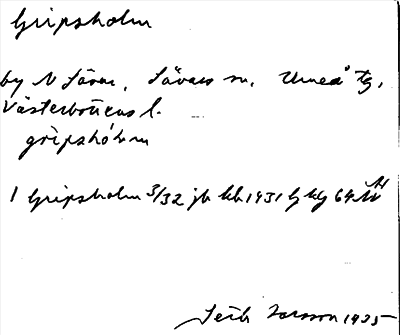 Gripsholm
by N Sävar, Sävars sn, Umeå tg,
Västerbottens l.
gri̇̀pshól̀m
1 Gripsholm 3/32 jb kb 1931 hg 64
Larsson 1935